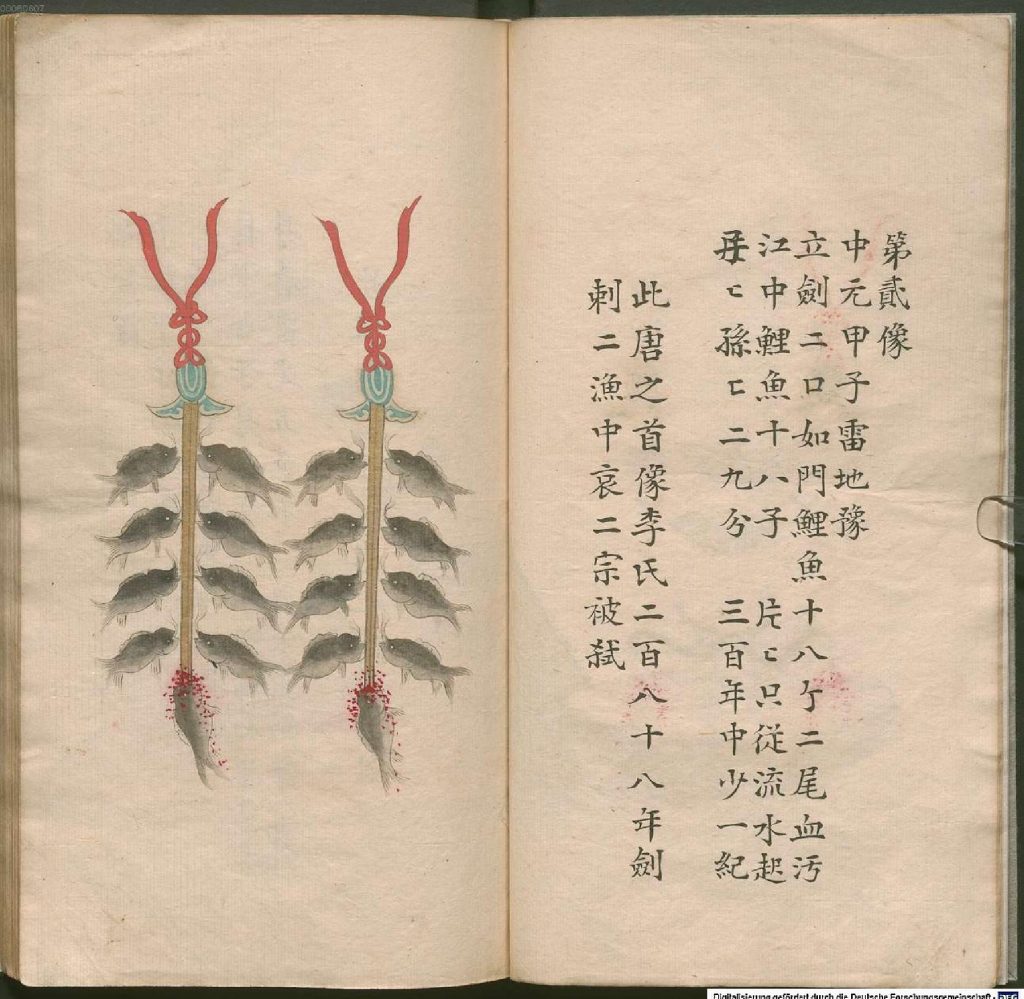 第貳像
中元甲子雷地豫
立劍二口如門鯉魚十八个二尾血污
江中鯉魚十八子 片匕只從流水起
匕孫匕二九分 三百年中少一紀
此唐之首像李氏二百八十八年劍
刺二漁中哀二宗被弒
00060807
Digitalisierung gefördert durch die Deutsche Forschungsgemeinschaft